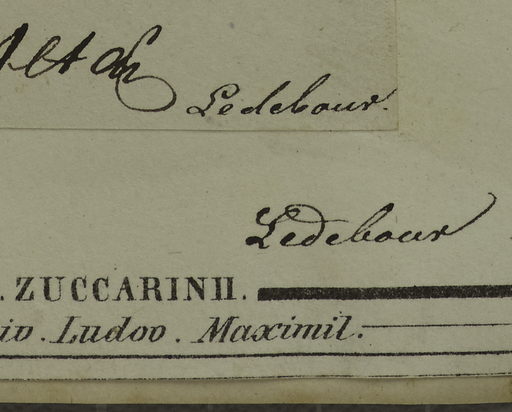 Altai
Ledebour.
Ledebour
. ZUCCARINII.
iv. Ludov. Maximil.